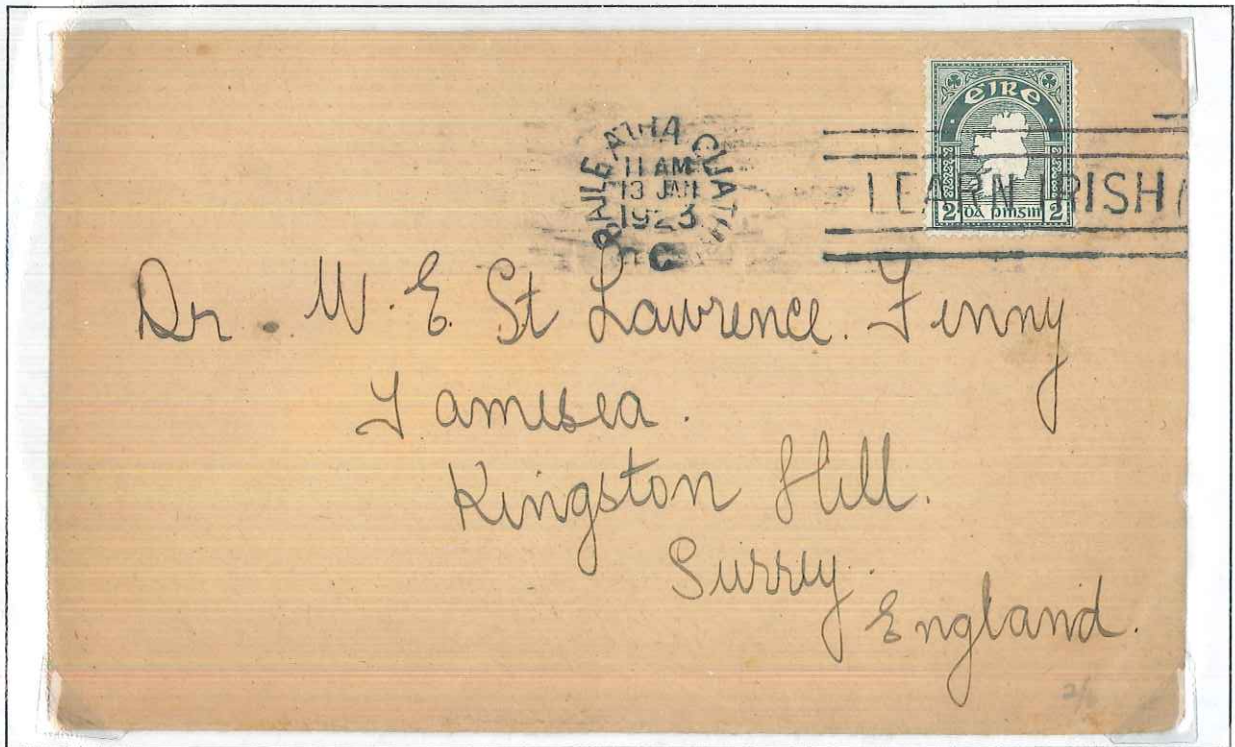 BAILE ATHA CLIATH
11 AM
13 JAN
1923
C
EIRE
LEARN IRISH
2 Dá pinsin 2
Dr. W. E. St Lawrence. Finny
Tamesea.
Kingston Hill.
Surrey.
England.
2/6